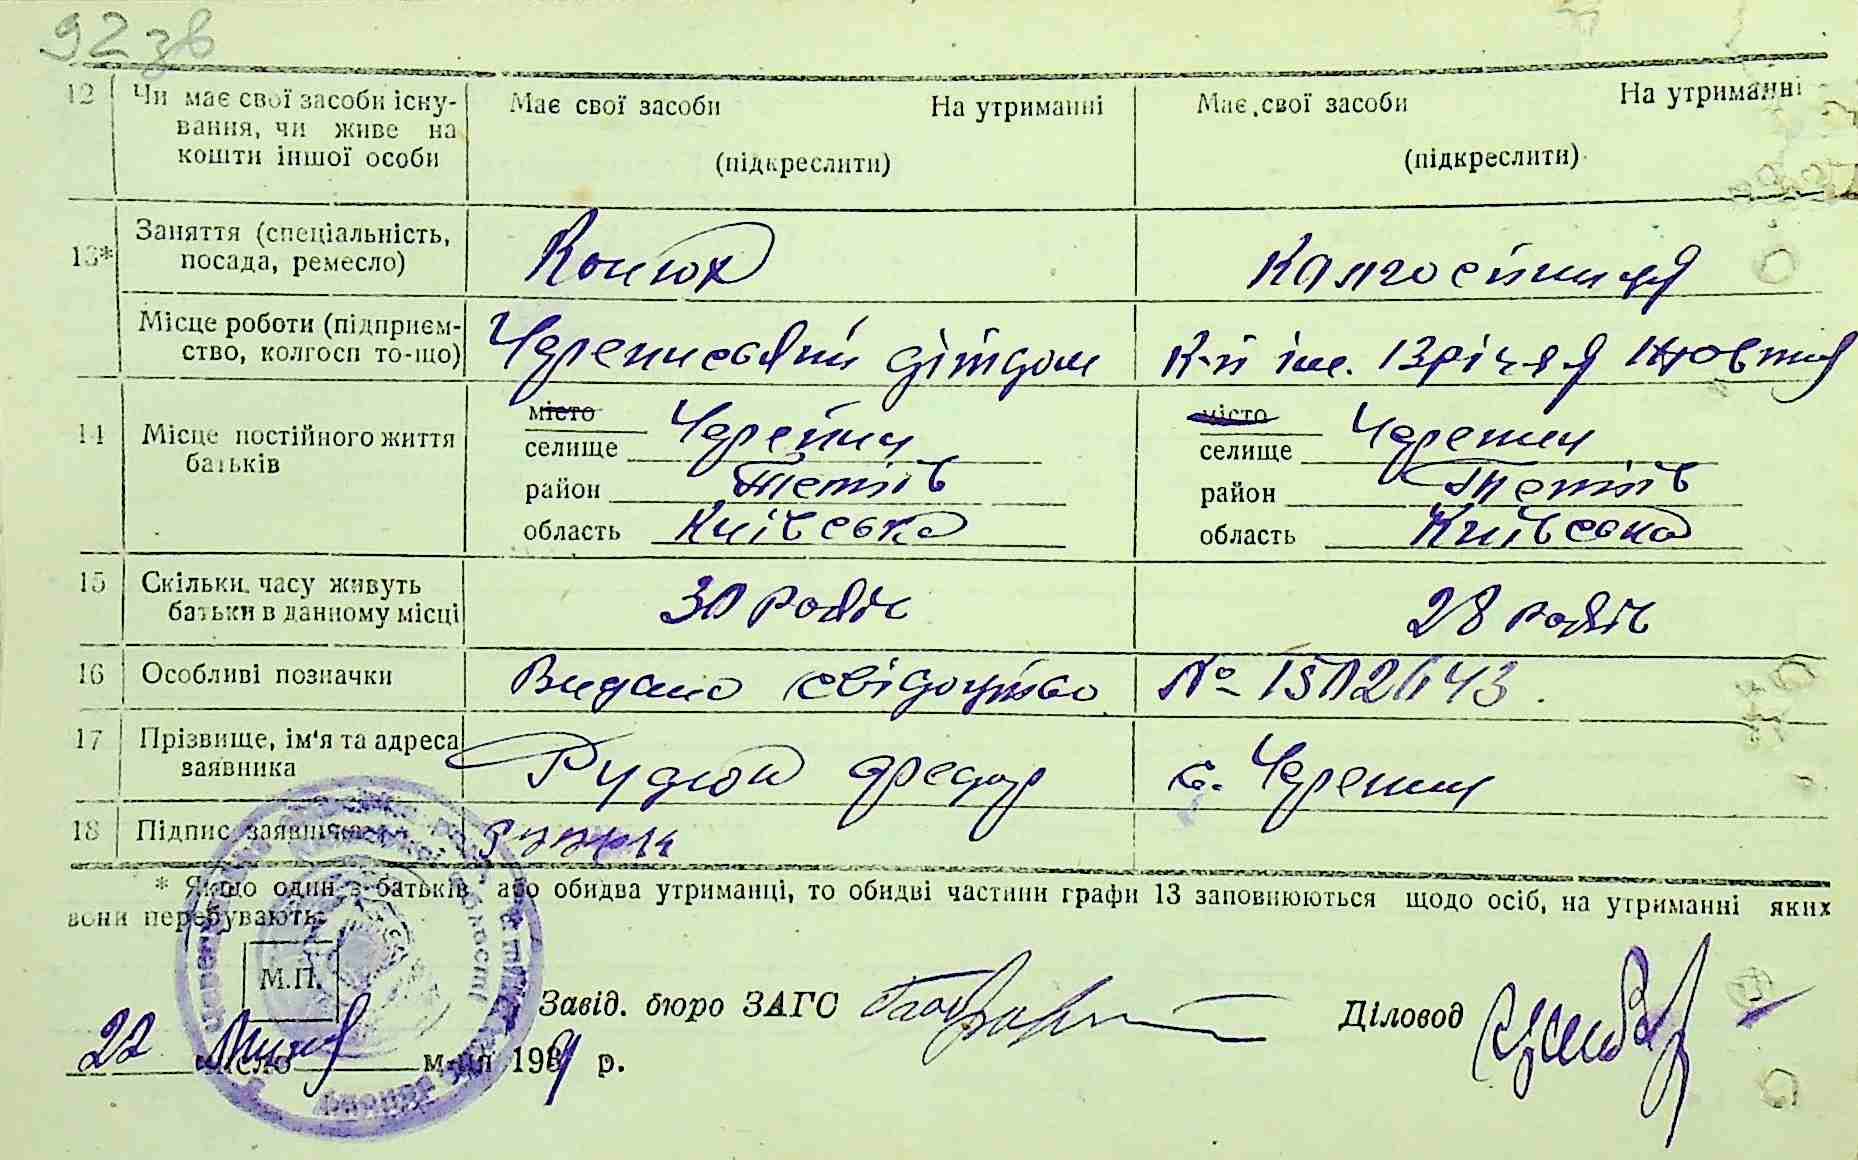 92 зв
12 Чи має свої засоби існу- Має свої засоби На утриманні Має свої засоби На утриманні
вання, чи живе на
кошти іншої особи (підкреслити) (підкреслити)
13* Заняття (спеціальність, Конюх Колгоспниця
посада, ремесло)
Місце роботи (підприєм- дітдом К-п ім. 13 річчя Жовтня
ство, колгосп то-що)
14 Місце постійного життя місто місто
батьків селище Черепин селище Черепин
район Тетіїв район Тетіїв
область Київська область Київська
15 Скільки часу живуть 30 років 28 років
батьки в данному місці
16 Особливі позначки Видано свідоцтво №
17 Прізвище, ім'я та адреса Федор с. Черепин
заявника
18 Підпис заявника
* Якщо один з батьків, або обидва утриманці, то обидві частини графи 13 заповнюються щодо осіб, на утриманні яких
вони перебувають.
М.П.
Завід. бюро ЗАГС Діловод
22 число м-ця 193 р.